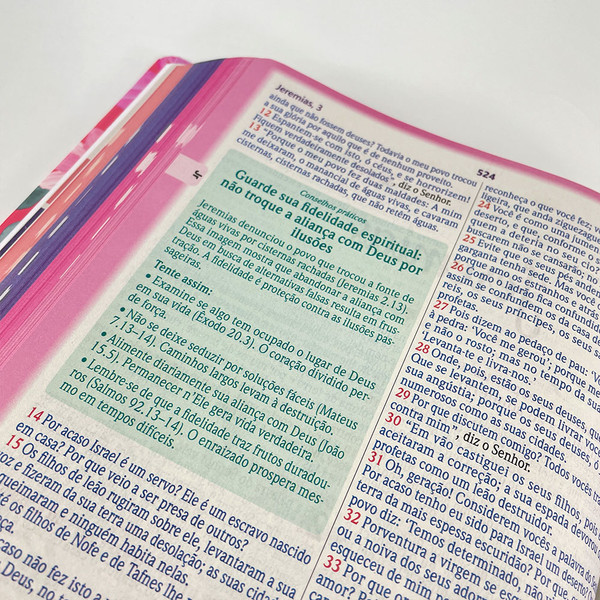 Jeremias, 3
524
ainda que não fossem deuses? Todavia o meu povo trocou
a sua glória por aquilo que é de nenhum proveito.
12 Espantem-se com isto, ó céus, e se horrorizem!
Fiquem verdadeiramente desolados, diz o Senhor.
13 "Porque o meu povo fez duas maldades: A mim
me deixaram, o manancial de águas vivas, e cavaram
cisternas, cisternas rachadas, que não retêm águas.
Jr
Conselhos práticos
Guarde sua fidelidade espiritual:
não troque a aliança com Deus por
ilusões
Jeremias denunciou o povo que trocou a fonte de
águas vivas por cisternas rachadas (Jeremias 2.13).
Essa imagem mostra que abandonar a aliança com
Deus em busca de alternativas falsas resulta em frus-
tração. A fidelidade é proteção contra as ilusões pas-
sageiras.
Tente assim:
• Examine se algo tem ocupado o lugar de Deus
em sua vida (Êxodo 20.3). O coração dividido per-
de força.
• Não se deixe seduzir por soluções fáceis (Mateus
7.13-14). Caminhos largos levam à destruição.
• Alimente diariamente sua aliança com Deus (João
15.5). Permanecer n'Ele gera vida verdadeira.
• Lembre-se de que a fidelidade traz frutos duradou-
ros (Salmos 92.13-14). O enraizado prospera mes-
mo em tempos difíceis.
14 Por acaso Israel é um servo? Ele é um escravo nascido
em casa? Por que veio a ser presa de outros?
15 Os filhos de leão rugiram sobre ele, levantaram a sua
voz e fizeram da sua terra uma desolação; as suas cidades
queimaram e ninguém habita nelas.
até os filhos de Nofe e de Tafnes lhe
caso não fez isto a
Deus, no
reconheça o que você fez;
ligeira, que anda ziguezague
24 Você é como uma jumenta
deserto, e que, conforme o
quem a deteria no seu
buscarem não se cansarão;
25 Evite que os seus pés ande
garganta tenha sede. Mas você
porque amo os estranhos e
26 Como o ladrão fica confundido
assim se confundem os da casa de
reis, os seus príncipes, os seus
profetas.
27 Pois dizem ao pedaço de pau: 'Vo
à pedra: 'Você me gerou'; porque me
e não o rosto; mas no tempo da sua
'Levanta-te e livra-nos.'
28 Onde, pois, estão os seus deuses, que
Que se levantem, se podem livrar você
sua angústia; porque os seus deuses, ó
numerosos como as suas cidades.
29 Por que discutem comigo? Todos vocês tra
contra mim", diz o Senhor.
30 "Em vão castiguei os seus filhos, pois
aceitaram a correção; a sua espada devorou
profetas como um leão destruidor.
31 Oh, geração! Considerem vocês a palavra do
Por acaso tenho eu sido para Israel um deserto? O
terra da mais espessa escuridão? Por que
povo diz: 'Temos determinado, não
32 Porventura a virgem se esquece
ou a noiva dos seus adornos
esqueceu de mim
33 Por que
amor?